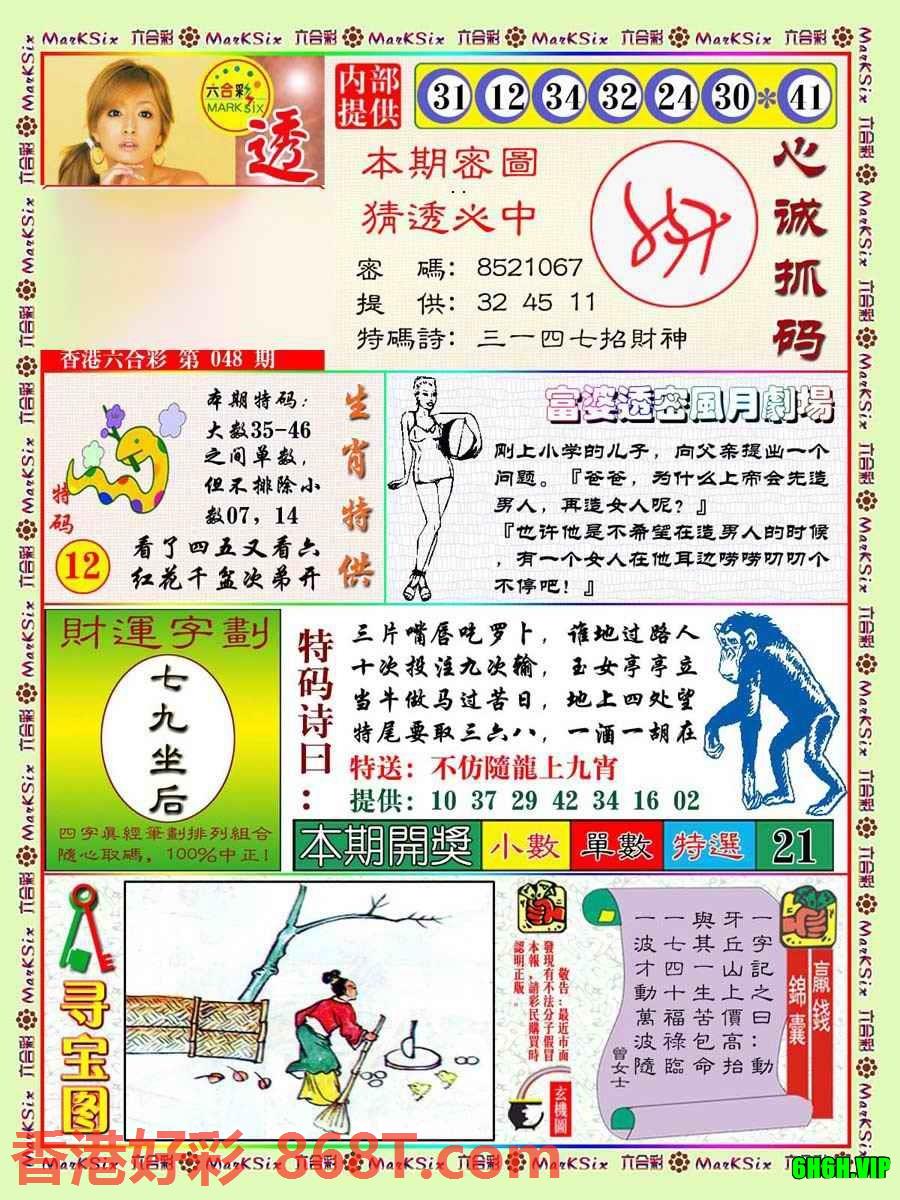 MarKSix 六合彩 MarKSix 六合彩 MarKSix 六合彩 MarKSix 六合彩 MarKSix 六合彩
六合彩
MARK SIX
透
内部
提供
31 12 34 32 24 30 * 41
本期密圖
猜透必中
密 碼: 8521067
提 供: 32 45 11
特碼詩: 三一四七招財神
心诚抓码
香港六合彩 第 048 期
本期特码:
大数35-46
之间单数,
但不排除小
数07, 14
特码
12
看了四五又看六
红花千盆次弟开
生肖特供
富婆透密風月劇場
刚上小学的儿子，向父亲提出一个
问题。『爸爸，为什么上帝会先造
男人，再造女人呢？』
『也许他是不希望在造男人的时候
，有一个女人在他耳边唠唠叨叨个
不停吧！』
財運字劃
七九坐后
四字眞經筆劃排列組合
隨心取碼，100%中正!
特码诗曰:
三片嘴唇吃罗卜，谁地过路人
十次投注九次输，玉女亭亭立
当牛做马过苦日，地上四处望
特尾要取三六八，一酒一胡在
特送: 不仿隨龍上九宵
提供: 10 37 29 42 34 16 02
本期開獎 小數 單數 特選 21
寻宝图
敬告:最近市面
發現有不法分子假冒
本報,請彩民購買時
認明正版。
玄機圖
一字記之曰:動
牙丘山上價高抬
與其一生苦包命
一七四十福祿臨
一波才動萬波隨
曾女士
贏錢
錦囊
香港好彩.868T.com
6H6H.VIP
MarKSix 六合彩 MarKSix 六合彩 MarKSix 六合彩 MarKSix 六合彩